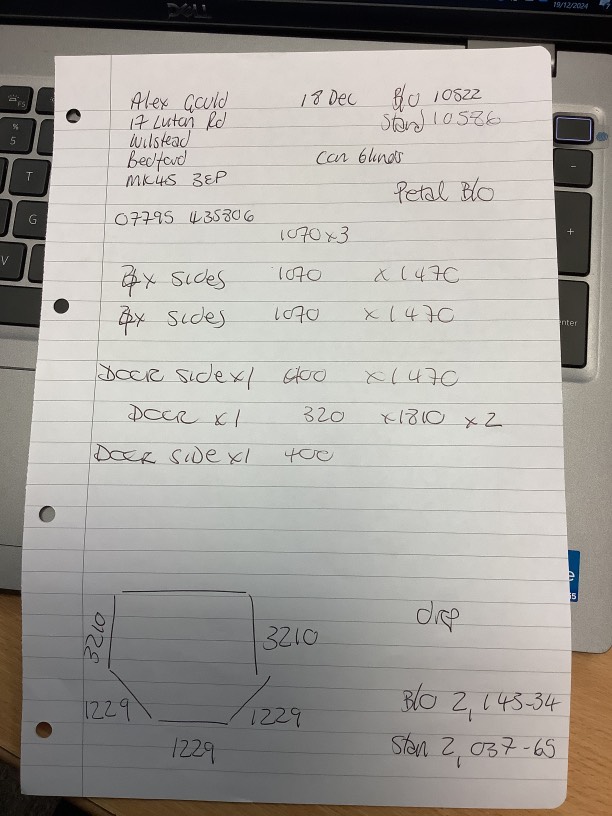 DELL
19/12/2024
Alex Gould 18 Dec B/O 10522
17 Luton Rd Stand 10586
Wilstead
Bedford Con blinds
MK45 3EP
Petal B/O
07795 435806
1070 x 3
x sides 1070 x 1470
x sides 1070 x 1470
DOOR side x1 400 x 1470
DOOR x1 320 x 1810 x 2
DOOR SIDE x1 400
3210 3210
1229 1229
1229
B/O 2,143-34
Stan 2,037-65
F5
%
5
T
G
V
-
+
enter